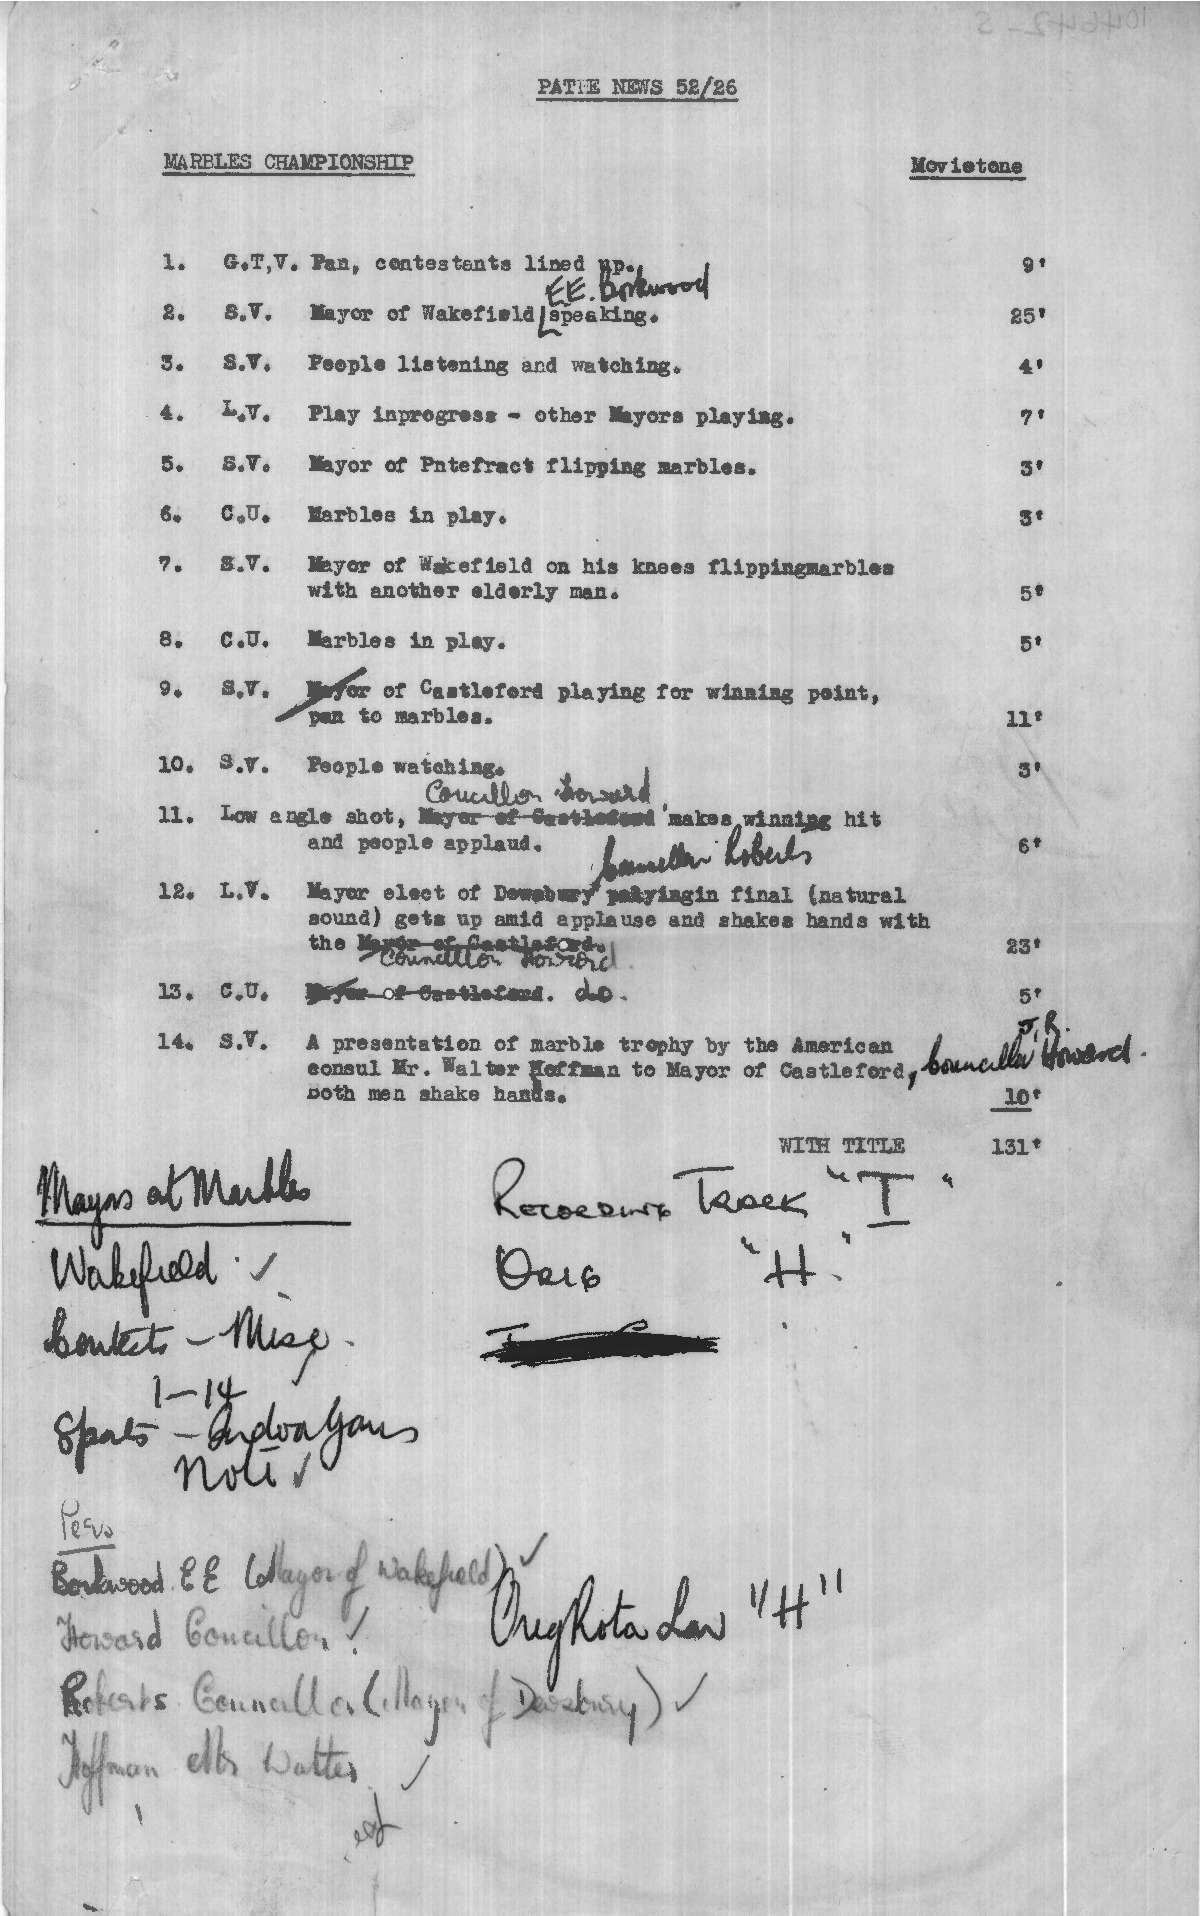 PATHE NEWS 52/26
MARBLES CHAMPIONSHIP Movietone
1. G.T,V. Pan, contestants lined up. 9'
E.E. Borkwood
2. S.V. Mayor of Wakefield speaking. 25'
3. S.V. People listening and watching. 4'
4. L.V. Play inprogress - other Mayors playing. 7'
5. S.V. Mayor of Pntefract flipping marbles. 3'
6. C.U. Marbles in play. 3'
7. S.V. Mayor of Wakefield on his knees flippingmarbles
with another elderly man. 5'
8. C.U. Marbles in play. 5'
9. S.V. Mayor of Castleford playing for winning point,
pan to marbles. 11'
10. S.V. People watching. 3'
Councillor Howard
11. Low angle shot, Mayor of Castleford makes winning hit
and people applaud. 6'
Councillor Roberts
12. L.V. Mayor elect of Dewsbury palyingin final (natural
sound) gets up amid applause and shakes hands with
the Mayor of Castleford. 23'
Councillor Howard
13. C.U. Mayor of Castleford. do. 5'
J.R.
14. S.V. A presentation of marble trophy by the American
consul Mr. Walter Hoffman to Mayor of Castleford, Councillor Howard.
both men shake hands. 10'
WITH TITLE 131'
Mayors at Marbles
Recording Track "I"
Wakefield ✓
Orig "H"
Contests - Misc.
1-14
Sports -
Pers
Borkwood E E (Mayor of Wakefield) ✓
Orig Rota Lav "H"
Howard Councillor ✓
Roberts Councillor (Mayor of Dewsbury) ✓
Hoffman Mr Walter ✓